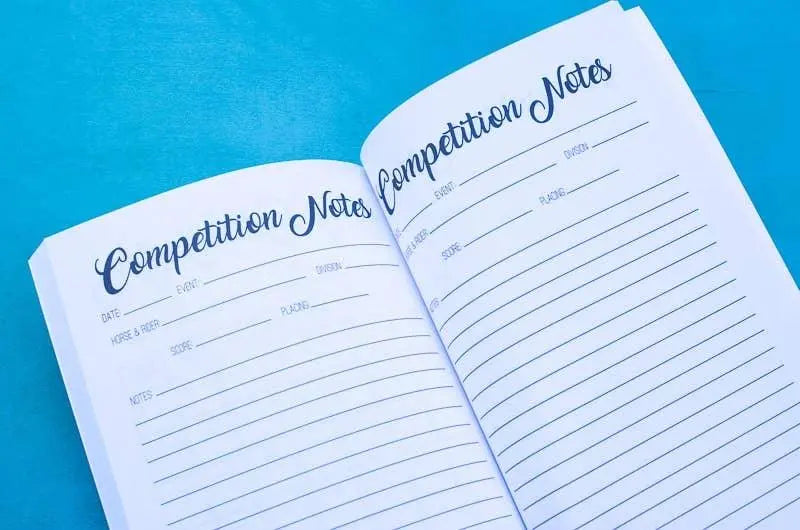 Competition Notes
DATE: EVENT:
HORSE & RIDER: DIVISION:
SCORE: PLACING:
NOTES:
Competition Notes
EVENT:
& RIDER: DIVISION:
SCORE: PLACING: